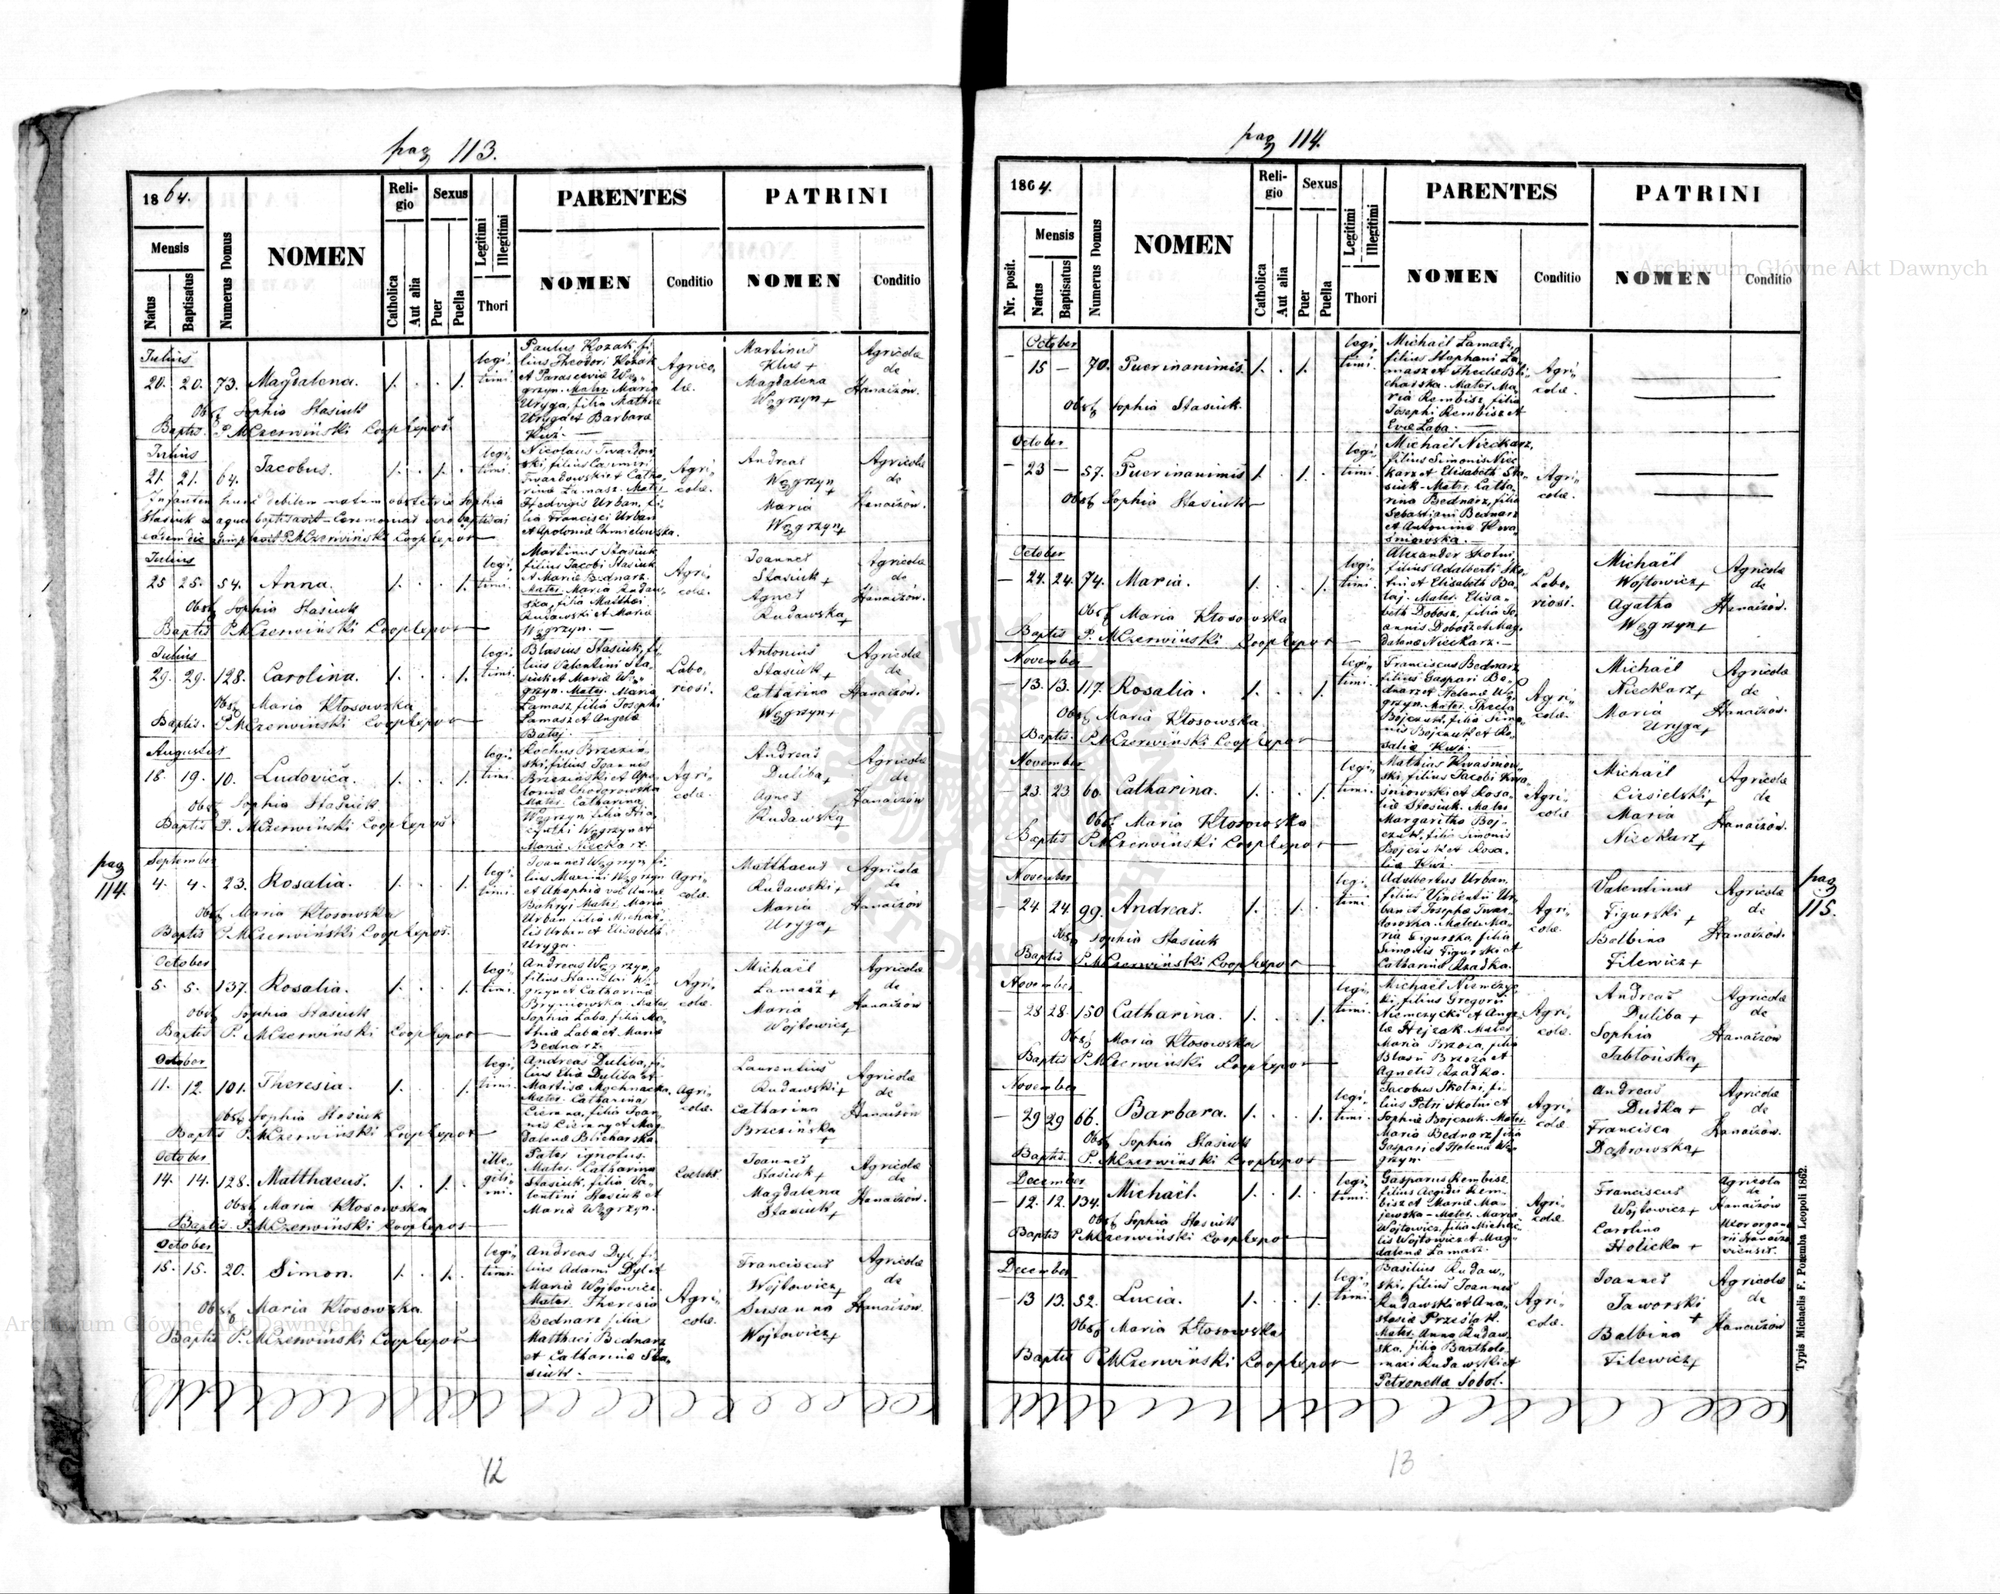 pag 113.
1864.
Mensis
Natus
Baptisatus
Numerus Domus
NOMEN
Reli-
gio
Catholica
Aut alia
Sexus
Puer
Puella
Legitimi
Illegitimi
Thori
PARENTES
NOMEN
Conditio
PATRINI
NOMEN
Conditio
Julius
20. 20. 73. Magdalena. 1. . . 1.
legi-
timi
Obst Sophia Stasiuk
Baptis. P. M. Czerwiński Coop
Paulus Kozak, fi-
lius Theodori Kozak
et Parasceviæ Wę-
grzyn. Mater. Maria
Uryga, filia Mathiæ
Uryga et Barbaræ
Kuś.
Agrico-
læ.
Martinus
Kluś +
Magdalena
Węgrzyn +
Agricolæ
de
Hanaizów.
Julius
21. 21. 64. Jacobus. 1. . 1. .
legi-
timi.
infantem hunc debilem natum obstetrix Sophia
Stasiuk ex aqua baptisavit - Ceremonias vero baptismi
eadem die supplevit P. M. Czerwiński Coop
Nicolaus Twardow-
ski, filius Casimiri
Twardowski et Catha-
rinæ Łamasz. Mater
Hedvigis Urban, fi-
lia Francisci Urban
et Apoloniæ Chmielowska.
Agri-
colæ.
Andreas
Węgrzyn
Maria
Węgrzyn +
Agricolæ
de
Hanaizów.
Julius
25 25. 54. Anna. 1. . . 1.
legi-
timi.
Obst Sophia Stasiuk
Baptis P. M. Czerwiński Coop
Martinus Stasiuk
filius Jacobi Stasiuk
et Mariæ Bednarz.
Mater. Maria Rudaw-
ska, filia Matthæi
Rudawski et Mariæ
Węgrzyn.
Agri-
colæ.
Joannes
Stasiuk +
Agnes
Rudawska +
Agricolæ
de
Hanaizów.
Julius
29. 29. 128. Carolina. 1. . . 1.
legi-
timi.
Obst Maria Kłosowska
Baptis. P. M. Czerwiński Coop
Blasius Stasiuk, fi-
lius Valentini Sta-
siuk et Mariæ Wę-
grzyn. Mater. Maria
Łamasz filia Josephi
Łamasz et Angelæ
Bałaj.
Labo-
riosi.
Antonius
Stasiuk +
Catharina
Węgrzyn +
Agricolæ
de
Hanaizów.
Augustus
18. 19. 10. Ludovica. 1. . . 1.
legi-
timi.
Obst Sophia Stasiuk
Baptis P. M. Czerwiński Coop
Rochus Brzeziń-
ski, filius Joannis
Brzeziński et Apo-
loniæ Chodorowska
Mater. Catharina
Węgrzyn filia Hia-
cynthi Węgrzyn et
Mariæ Nieckarz.
Agri-
colæ.
Andreas
Duliba +
Agnes
Rudawska
Agricolæ
de
Hanaizów
pag
114.
September
4. 4. 23. Rosalia. 1. . . 1.
legi-
timi.
Obst Maria Kłosowska
Baptis P. M. Czerwiński Coop
Joannes Węgrzyn fi-
lius Marini Węgrzyn
Mater. Maria
Urban filia Michaë-
lis Urban et Elisabeth
Uryga.
Agri-
colæ.
Matthaeus
Rudawski +
Maria
Uryga +
Agricolæ
de
Hanaizów
October
5. 5. 137. Rosalia. 1. . . 1.
legi-
timi.
Obst Sophia Stasiuk
Baptis P. M. Czerwiński Coop
Andreas Węgrzyn,
filius Stanislai Wę-
grzyn et Catharinæ
Bryniowska. Mater.
Sophia Łaba, filia Ma-
thiæ Łaba et Mariæ
Bednarz.
Agri-
colæ.
Michaël
Łamasz +
Maria
Wojtowicz +
Agricolæ
de
Hanaizów
October
11. 12. 101. Theresia. 1. . . 1.
legi-
timi.
Obst Sophia Stasiuk
Baptis P. M. Czerwiński Coop
Andreas Duliba, fi-
lius Eliæ Duliba et
Mater. Catharina
Cierna, filia Joan-
nis Cierny et Mag-
dalenæ Blicharska.
Agri-
colæ.
Laurentius
Rudawski +
Catharina
Brzezińska +
Agricolæ
de
Hanaizów
October
14. 14. 128. Matthaeus. 1. . 1. .
ille-
giti-
mi.
Obst Maria Kłosowska
Baptis. P. M. Czerwiński Coop
Pater ignotus.
Mater. Catharina
Stasiuk, filia Va-
lentini Stasiuk et
Mariæ Węgrzyn.
Joannes
Stasiuk +
Magdalena
Stasiuk +
Agricolæ
de
Hanaizów.
October
15. 15. 20. Simon. 1. . 1. .
legi-
timi.
Obst Maria Kłosowska.
Baptis P. M. Czerwiński Coop
Andreas Dyl, fi-
lius Adami Dyl et
Mariæ Wojtowicz.
Mater. Theresia
Bednarz filia
Matthæi Bednarz
et Catharinæ Sta-
siuk.
Agri-
colæ.
Franciscus
Wojtowicz +
Susanna
Wojtowicz +
Agricolæ
de
Hanaizów.
12
pag 114.
1864.
Nr. posit.
Mensis
Natus
Baptisatus
Numerus Domus
NOMEN
Reli-
gio
Catholica
Aut alia
Sexus
Puer
Puella
Legitimi
Illegitimi
Thori
PARENTES
NOMEN
Conditio
PATRINI
NOMEN
Conditio
October
15 — 70. Puer inanimis 1. . 1.
legi-
timi.
Obst Sophia Stasiuk.
Michaël Łamasz,
filius Stephani Ła-
masz et Theclæ Bli-
charska. Mater Ma-
ria Rembisz, filia
Josephi Rembisz et
Evæ Łaba.
Agri-
colæ
October
23 — 57. Puer inanimis 1. . 1.
legi-
timi.
Obst Sophia Stasiuk
Michaël Nieckarz,
filius Simonis Niec-
karz et Elisabeth Sta-
siuk. Mater. Catha-
rina Bednarz, filia
Sebastiani Bednarz
et Antoninæ Kwa-
śniowska.
Agri-
colæ.
October
24. 24. 74. Maria. 1. . . 1.
legi-
timi.
Obst Maria Kłosowska
Baptis P. M. Czerwiński Coop
Alexander Skotni,
filius Adalberti Sko-
tni et Elisabeth Ba-
łaj. Mater. Elisa-
beth Dobosz, filia Jo-
annis Dobosz et Mag-
dalenæ Nieckarz.
Labo-
riosi.
Michaël
Wojtowicz +
Agatha
Węgrzyn +
Agricolæ
de
Hanaizów.
November
13. 13. 117. Rosalia. 1. . . 1.
legi-
timi.
Obst Maria Kłosowska.
Baptis. P. M. Czerwiński Coop
Franciscus Bednarz
filius Gaspari Be-
dnarz et Helenæ Wę-
grzyn. Mater. Thecla
Bojczuk, filia Simo-
nis Bojczuk et Ro-
saliæ Kuś.
Agri-
colæ.
Michaël
Nieckarz +
Maria
Uryga +
Agricolæ
de
Hanaizów.
November
23. 23 60. Catharina. 1. . . 1.
legi-
timi.
Obst Maria Kłosowska
Baptis P. M. Czerwiński Coop
Mathias Kwaśniow-
ski, filius Jacobi Kwa-
śniowski et Rosa-
liæ Stasiuk. Mater
Margaritha Boj-
czuk, filia Simonis
Bojczuk et Rosa-
liæ Kuś.
Agri-
colæ
Michaël
Ciesielski +
Maria
Nieckarz +
Agricolæ
de
Hanaizów.
pag
115.
November
24 24. 99. Andreas. 1. . 1. .
legi-
timi.
Obst Sophia Stasiuk
Baptis P. M. Czerwiński Coop
Adalbertus Urban,
filius Vincentii Ur-
ban et Josephæ Twar-
dowska. Mater. Ma-
ria Figurska, filia
Simonis Figurski et
Catharinæ Rzadka.
Agri-
colæ.
Valentinus
Figurski +
Balbina
Filewicz +
Agricolæ
de
Hanaizów.
November
28 28. 150 Catharina. 1. . . 1.
legi-
timi.
Obst Maria Kłosowska
Baptis P. M. Czerwiński Coop
Michaël Niemczyc-
ki, filius Gregorii
Niemczycki et Ange-
læ Hejzak. Mater.
Maria Brzoza, filia
Blasii Brzoza et
Agnetis Rzadka.
Agri-
colæ.
Andreas
Duliba +
Sophia
Jabłońska +
Agricolæ
de
Hanaizów
November
29 29 66. Barbara. 1. . . 1.
legi-
timi.
Obst Sophia Stasiuk
Baptis. P. M. Czerwiński Coop
Jacobus Skotni, fi-
lius Petri Skotni et
Sophiæ Bojczuk. Mater.
Maria Bednarz filia
Gaspari et Helenæ Wę-
grzyn.
Agri-
colæ.
Andreas
Dudka +
Francisca
Dąbrowska +
Agricolæ
de
Hanaizów.
December
12. 12. 134. Michaël. 1. . 1. .
legi-
timi.
Obst Sophia Stasiuk
Baptis P. M. Czerwiński Coop
Gasparus Rembisz,
filius Aegidii Rem-
bisz et Mariæ Ma-
jewska - Mater. Maria
Wojtowicz, filia Michaë-
lis Wojtowicz et Mag-
dalenæ Łamasz.
Agri-
colæ.
Franciscus
Wojtowicz +
Carolina
Holicka +
Agricola
de
Hanaizów
Uxor orga-
rii Hanaizo-
viensis.
December
13 13. 52. Lucia. 1. . . 1.
legi-
timi.
Obst Maria Kłosowska
Baptis P. M. Czerwiński Coop
Basilius Rudaw-
ski, filius Joannis
Rudawski et Ana-
stasiæ Prześlak.
Mater. Anna Rudaw-
ska, filia Bartholo-
maei Rudawski et
Petronellæ Sobol.
Agri-
colæ.
Joannes
Jaworski +
Balbina
Filewicz +
Agricolæ
de
Hanaizów
13
Typis Michaelis F. Poremba Leopoli 1862.
Archiwum Główne Akt Dawnych
Archiwum Główne Akt Dawnych